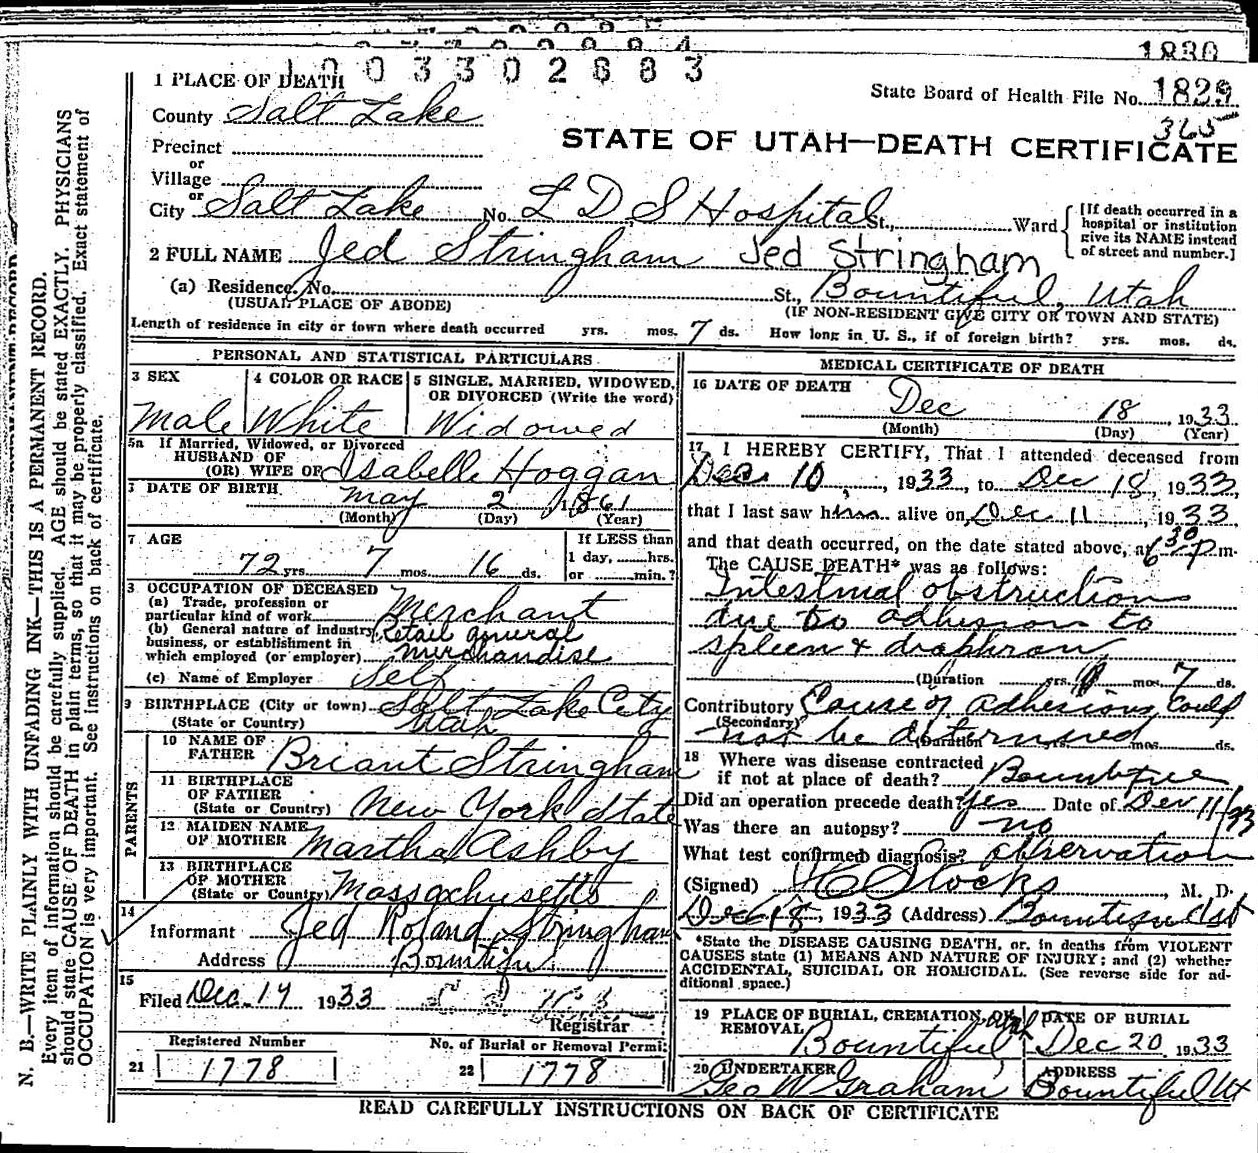 1830
1003302683
1 PLACE OF DEATH
State Board of Health File No. 1829
365
County Salt Lake
STATE OF UTAH—DEATH CERTIFICATE
Precinct
or
Village
or
City Salt Lake No. L D S Hospital St., Ward
[If death occurred in a hospital or institution give its NAME instead of street and number.]
2 FULL NAME Jed Stringham Jed Stringham
(a) Residence. No. St., Bountiful, Utah
(USUAL PLACE OF ABODE) (IF NON-RESIDENT GIVE CITY OR TOWN AND STATE)
Length of residence in city or town where death occurred yrs. mos. 7 ds. How long in U. S., if of foreign birth? yrs. mos. ds.
PERSONAL AND STATISTICAL PARTICULARS
3 SEX 4 COLOR OR RACE 5 SINGLE, MARRIED, WIDOWED, OR DIVORCED (Write the word)
Male White Widowed
5a If Married, Widowed, or Divorced
HUSBAND OF
(OR) WIFE OF Isabelle Hoggan
DATE OF BIRTH
May 2 1861
(Month) (Day) (Year)
7 AGE If LESS than
1 day, hrs.
72 yrs. 7 mos. 16 ds. or min.?
OCCUPATION OF DECEASED
(a) Trade, profession or
particular kind of work Merchant
(b) General nature of industry, Retail general
business, or establishment in
which employed (or employer) Merchandise
(c) Name of Employer Self
9 BIRTHPLACE (City or town) Salt Lake City
(State or Country) Utah
PARENTS
10 NAME OF FATHER Briant Stringham
11 BIRTHPLACE OF FATHER
(State or Country) New York State
12 MAIDEN NAME OF MOTHER Martha Ashby
13 BIRTHPLACE OF MOTHER
(State or Country) Massachusetts
14
Informant Jed Roland Stringham
Address Bountiful
15
Filed Dec. 19 1933
Registrar
Registered Number No. of Burial or Removal Permit
21 1778 22 1778
MEDICAL CERTIFICATE OF DEATH
16 DATE OF DEATH Dec 18, 1933
(Month) (Day) (Year)
17 I HEREBY CERTIFY, That I attended deceased from
Dec. 10, 1933, to Dec 18, 1933,
that I last saw him alive on Dec 11, 1933
and that death occurred, on the date stated above, at 6 30 P m.
The CAUSE DEATH* was as follows:
Intestinal obstruction
due to adhesions to
spleen & diaphram
(Duration yrs. mos. 7 ds.
Contributory Cause of adhesions could
(Secondary)
not be determined
(Duration yrs. mos. ds.
18 Where was disease contracted
if not at place of death? Bountiful
Did an operation precede death? Yes Date of Dec 11/33
Was there an autopsy? no
What test confirmed diagnosis? Observation
(Signed) Stocks, M. D.
Dec 18, 1933 (Address) Bountiful Ut
*State the DISEASE CAUSING DEATH, or, in deaths from VIOLENT
CAUSES state (1) MEANS AND NATURE OF INJURY; and (2) whether
ACCIDENTAL, SUICIDAL OR HOMICIDAL. (See reverse side for ad-
ditional space.)
19 PLACE OF BURIAL, CREMATION, OR REMOVAL DATE OF BURIAL
Bountiful Utah Dec 20 1933
20 UNDERTAKER ADDRESS
Geo W Graham Bountiful Ut
READ CAREFULLY INSTRUCTIONS ON BACK OF CERTIFICATE
N. B.—WRITE PLAINLY WITH UNFADING INK—THIS IS A PERMANENT RECORD.
Every item of information should be carefully supplied. AGE should be stated EXACTLY. PHYSICIANS
should state CAUSE OF DEATH in plain terms, so that it may be properly classified. Exact statement of
OCCUPATION is very important. See instructions on back of certificate.